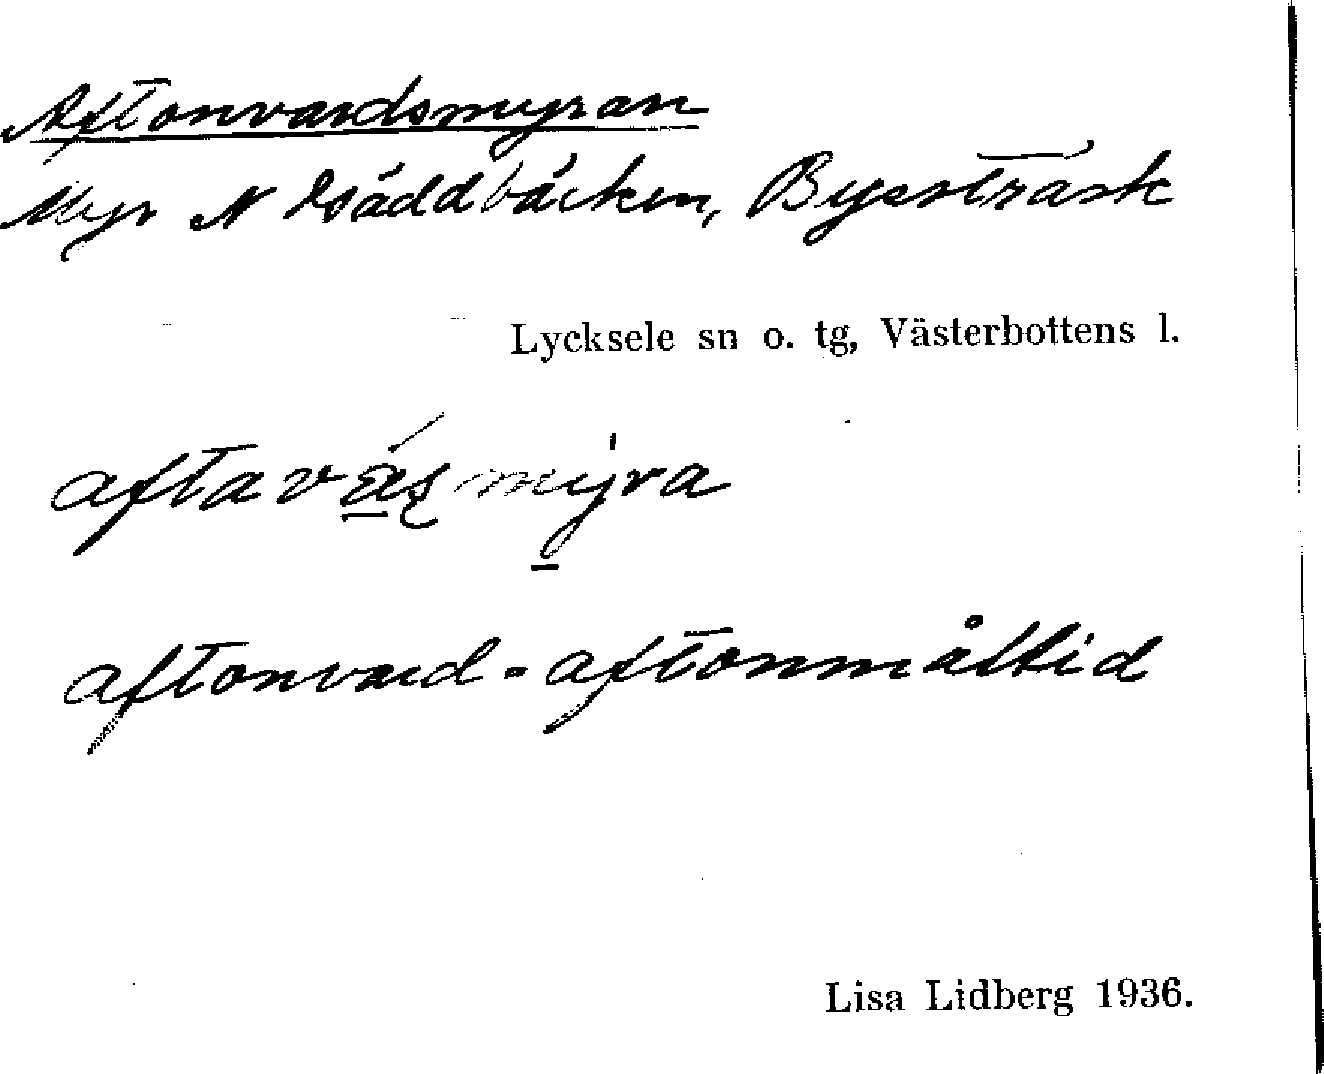 Aftonvardsmyran
Myr N Bäddbäcken, Byssträsk
Lycksele sn o. tg, Västerbottens l.
aftavásmýra
aftonvard - aftonmåltid
Lisa Lidberg 1936.